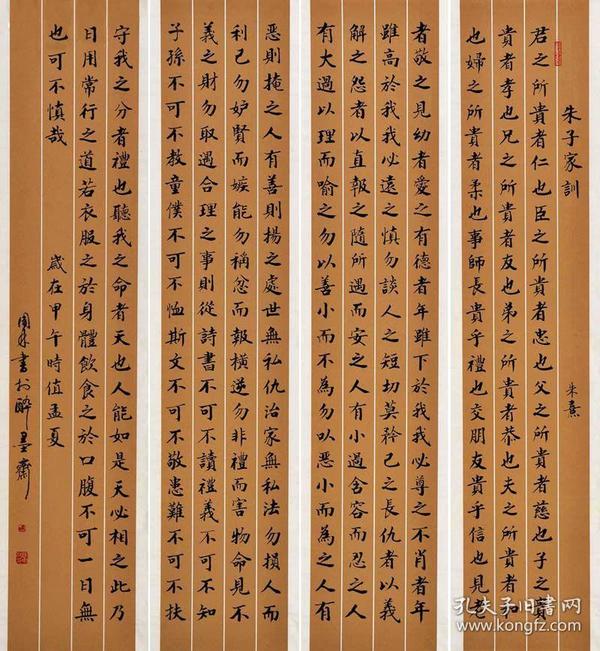 朱子家訓 朱熹
君之所貴者仁也臣之所貴者忠也父之所貴者慈也子之
貴者孝也兄之所貴者友也弟之所貴者恭也夫之所貴者
也婦之所貴者柔也事師長貴乎禮也交朋友貴乎信也見老
者敬之見幼者愛之有德者年雖下於我我必尊之不肖者年
雖高於我我必遠之慎勿談人之短切莫矜己之長仇者以義
解之怨者以直報之隨所遇而安之人有小過含容而忍之人
有大過以理而喻之勿以善小而不為勿以惡小而為之人有
惡則掩之人有善則揚之處世無私仇治家無私法勿損人而
利己勿妒賢而嫉能勿稱忿而報橫逆勿非禮而害物命見不
義之財勿取遇合理之事則從詩書不可不讀禮義不可不知
子孫不可不教童僕不可不恤斯文不可不敬患難不可不扶
守我之分者禮也聽我之命者天也人能如是天必相之此乃
日用常行之道若衣服之於身體飲食之於口腹不可一日無
也可不慎哉 歲在甲午時值孟夏
書於醉墨齋
孔夫子旧书网
www.kongfz.com